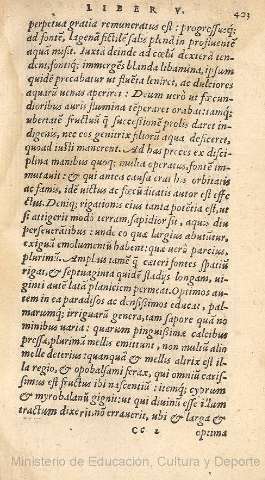 LIBER V.
423
perpetua gratia remuneratus est: progressusq;
ad fontē, lagenā fictilē salis plenā in profluente
aquā misit. Iuxta deinde ad cœlū dexterā ten
dens, fontiq; immergēs blanda libamina, ipsum
quidē precabatur ut fluēta leniret, ac dulciores
aquarū uenas aperiret: Deum uerò ut fœcun
dioribus auris flumina tēperaret orabat: tamq;
ubertatē fructuū q̃ successionē prolis daret in
digenis, nec eos genitrix filiorū aqua deficeret,
quoad iusti manerent. Ad has preces ex disci
plina manibus quoq; multa operatus, fontē im
mutauit: & qui antea causa erat his orbitatis
ac famis, idē uictus ac fœcūditatis autor est effe
ctus. Deniq; rigationis eius tanta potētia est, ut
si attigerit modò terram, sapidior sit, aquis diu
perseuerātibus: unde eo quæ largius abutūtur,
exiguū emolumentū habent: quæ uerò parcius,
plurimū. Amplius tamē q̃ cateri fontes spatiū
rigat, & septuaginta quidē stadijs longam, ui-
ginti autē lata planiciem permeat. Optimos au
tem in ea paradisos ac densissimos educat, pal-
marumq; irriguarū genera, tam sapore quā no
minibus uaria: quarum pinguissimæ calcibus
pressæ, plurima mellis emittunt, non multū alio
melle deterius: quanquā & mellis altrix est il
la regio, & opobalsami ferax, qui omniū caris-
simus est fructus ibi nascentiū: itemq; cyprum
& myrobalanū gignit: ut qui diuinū esse illum
tractum dixerit, nō errauerit, ubi & larga &
CC 2 optima
Ministerio de Educación, Cultura y Deporte